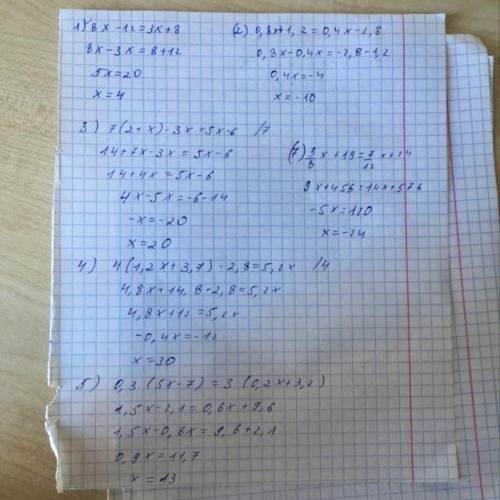 1) 8x-12=3x+8
8x-3x=8+12
5x=20
x=4
(2) 0,8x+1,2=0,4x-2,8
0,8x-0,4x=-2,8-1,2
0,4x=-4
x=-10
3) 7(2+x)-3x=5x-6 /7
14+7x-3x=5x-6
14+4x=5x-6
4x-5x=-6-14
-x=-20
x=20
(7) 3/8 x+19=7/12 x+24
9x+456=14x+576
-5x=120
x=-24
4) 4(1,2x+3,7)-2,8=5,2x /4
4,8x+14,8-2,8=5,2x
4,8x+12=5,2x
-0,4x=-12
x=30
5) 0,3(5x-7)=3(0,2x+3,2)
1,5x-2,1=0,6x+9,6
1,5x-0,6x=9,6+2,1
0,9x=11,7
x=13